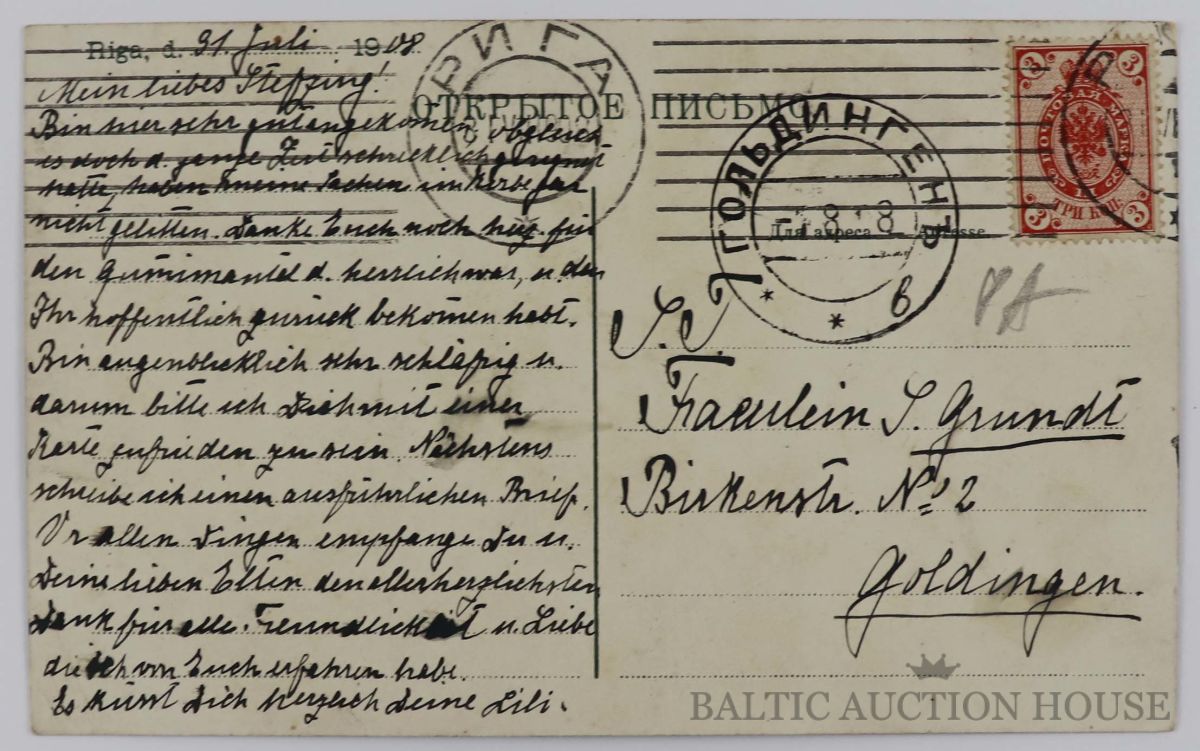 Riga, d. 31. Juli 1908
Mein liebes Steffing!
Bin hier sehr gut angekom̅en, obgleich
es doch d. ganze Zeit schrecklich geregnet
hatte, haben meine Sachen im Korbe gar
nicht gelitten. Danke Euch noch für
den Gum̅imantel d. herrlich war, u. den
Ihr hoffentlich zurück bekom̅en habt.
Bin augenblicklich sehr schläfrig u.
darum bitte ich Dich mit einer
Karte zufrieden zu sein. Nächstens
schreibe ich einen ausführlichen Brief.
Vr allen Dingen empfange Du u.
Deine lieben Eltern den allerherzlichsten
Dank für alle Freundlickeit u. Liebe
die ich von Euch erfahren habe.
Es küsst Dich herzlich Deine Lili.
РИГА
ОТКРЫТОЕ ПИСЬМО
ГОЛЬДИНГЕНЪ
8 8
в
Для адреса Adresse
3 3
ПОЧТОВАЯ МАРКА
ТРИ КОП.
3 3
S. T.
Fraeulein S. Grundt
Birkenstr. № 2
Goldingen.
BALTIC AUCTION HOUSE